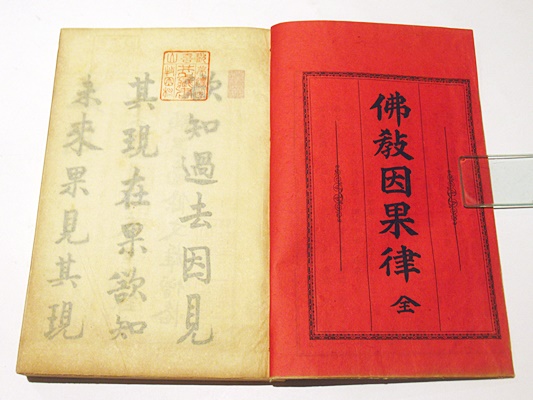 佛教因果律 全
欲知過去因見
其現在果欲知
未來果見其現